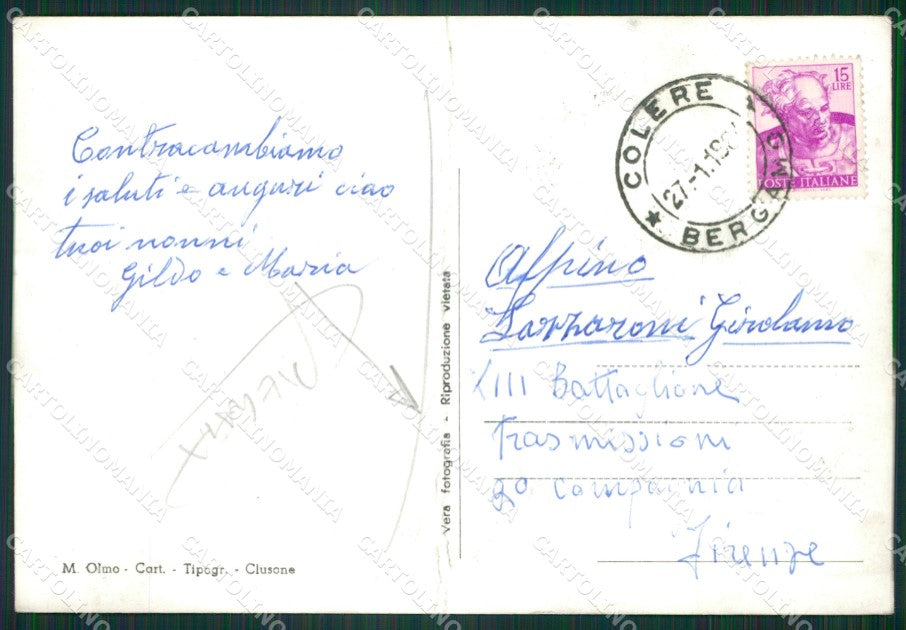 Contracambiamo
i saluti e auguri ciao
tuoi nonni
Gildo e Maria
M. Olmo - Cart. - Tipogr. - Clusone
Vera fotografia - Riproduzione vietata
COLERE
27.-1.19
BERGAMO
15
LIRE
POSTE ITALIANE
Alpino
Lazzaroni Girolamo
LIII Battaglione
Trasmissioni
2ª compagnia
Firenze
CARTOLINOMANIA